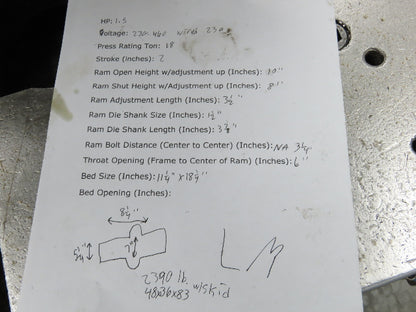 HP: 1.5
Voltage: 230-460 wired 230
Press Rating Ton: 18
Stroke (inches): 2
Ram Open Height w/adjustment up (Inches): 10"
Ram Shut Height w/adjustment up (Inches): 8"
Ram Adjustment Length (Inches): 3½"
Ram Die Shank Size (Inches): 1½"
Ram Die Shank Length (Inches):
Ram Bolt Distance (Center to Center) (Inches): NA
Throat Opening (Frame to Center of Ram) (Inches): 6"
Bed Size (Inches): 11¼" x 18¼"
Bed Opening (Inches):
8¼"
5¼"
2390 lb.
48x36x83 w/skid